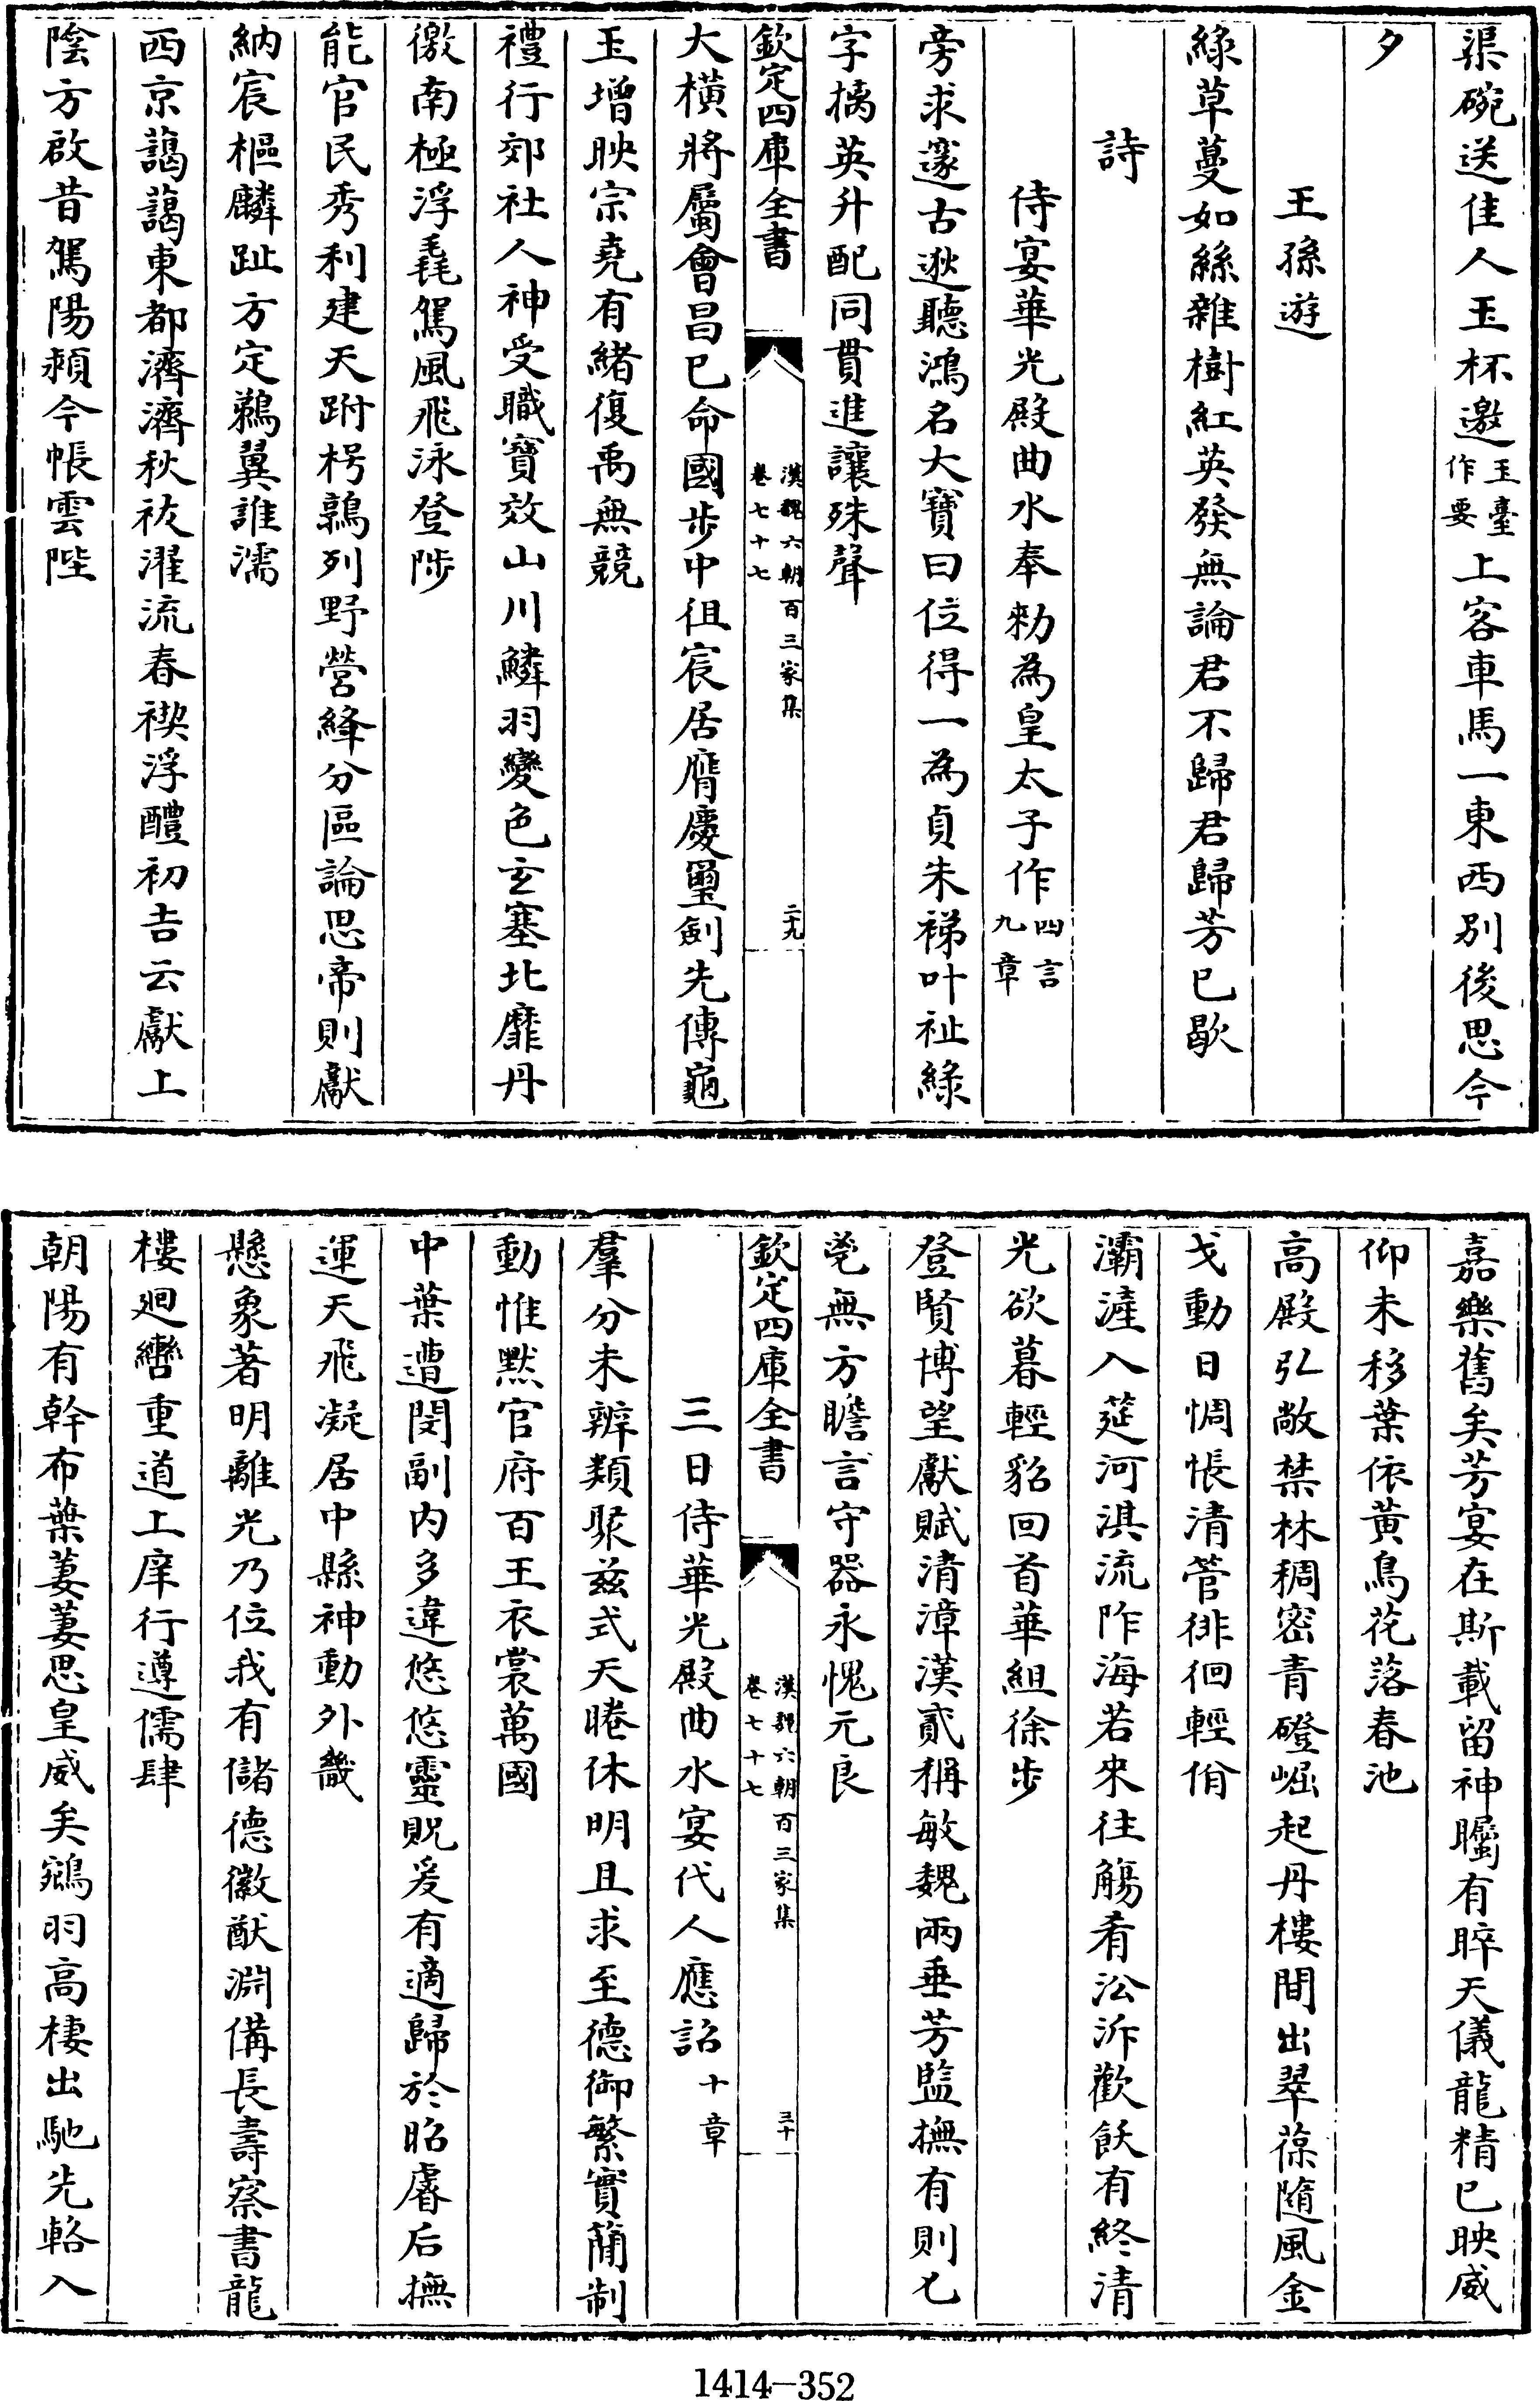 渠碗送佳人玉杯邀玉臺作要上客車馬一東西別後思今
夕
王孫遊
綠草蔓如絲雜樹紅英發無論君不歸君歸芳已歇
詩
侍宴華光殿曲水奉勑為皇太子作四言九章
旁求邃古逖聽鴻名大寶曰位得一為貞朱祶叶祉綠
字摛英升配同貫進讓殊聲
欽定四庫全書
漢魏六朝百三家集
卷七十七
二十九
大橫將屬會昌已命國步中徂宸居膺慶璽劍先傳龜
玉增映宗堯有緒復禹無競
禮行郊社人神受職寶效山川鱗羽變色玄塞北靡丹
徼南極浮毳駕風飛泳登陟
能官民秀利建天跗枵鶉列野營絳分區論思帝則獻
納宸樞麟趾方定鵜翼誰濡
西京藹藹東都濟濟秋祓濯流春禊浮醴初吉云獻上
陰方啟昔駕陽瀬今帳雲陛
嘉樂舊矣芳宴在斯載留神矚有睟天儀龍精已映威
仰未移葉依黃鳥花落春池
高殿弘敞禁林稠密青磴崛起丹樓間出翠葆隨風金
戈動日惆悵清管徘徊輕佾
灞滻入筵河淇流阼海若來往觴肴沿泝歡飫有終清
光欲暮輕貂回首華組徐步
登賢博望獻賦清漳漢貳稱敏魏兩垂芳監撫有則匕
鬯無方瞻言守器永愧元良
欽定四庫全書
漢魏六朝百三家集
卷七十七
三十
三日侍華光殿曲水宴代人應詔十章
羣分未辨類聚茲式天睠休明且求至德御繁實簡制
動惟默官府百王衣裳萬國
中葉遭閔副內多違悠悠靈貺爰有適歸於昭睿后撫
運天飛凝居中縣神動外畿
懸象著明離光乃位我有儲德徽猷淵備長壽察書龍
樓迴轡重道上庠行遵儒肆
朝陽有幹布葉萋萋思皇威矣鵷羽高棲出馳先輅入
1414-352